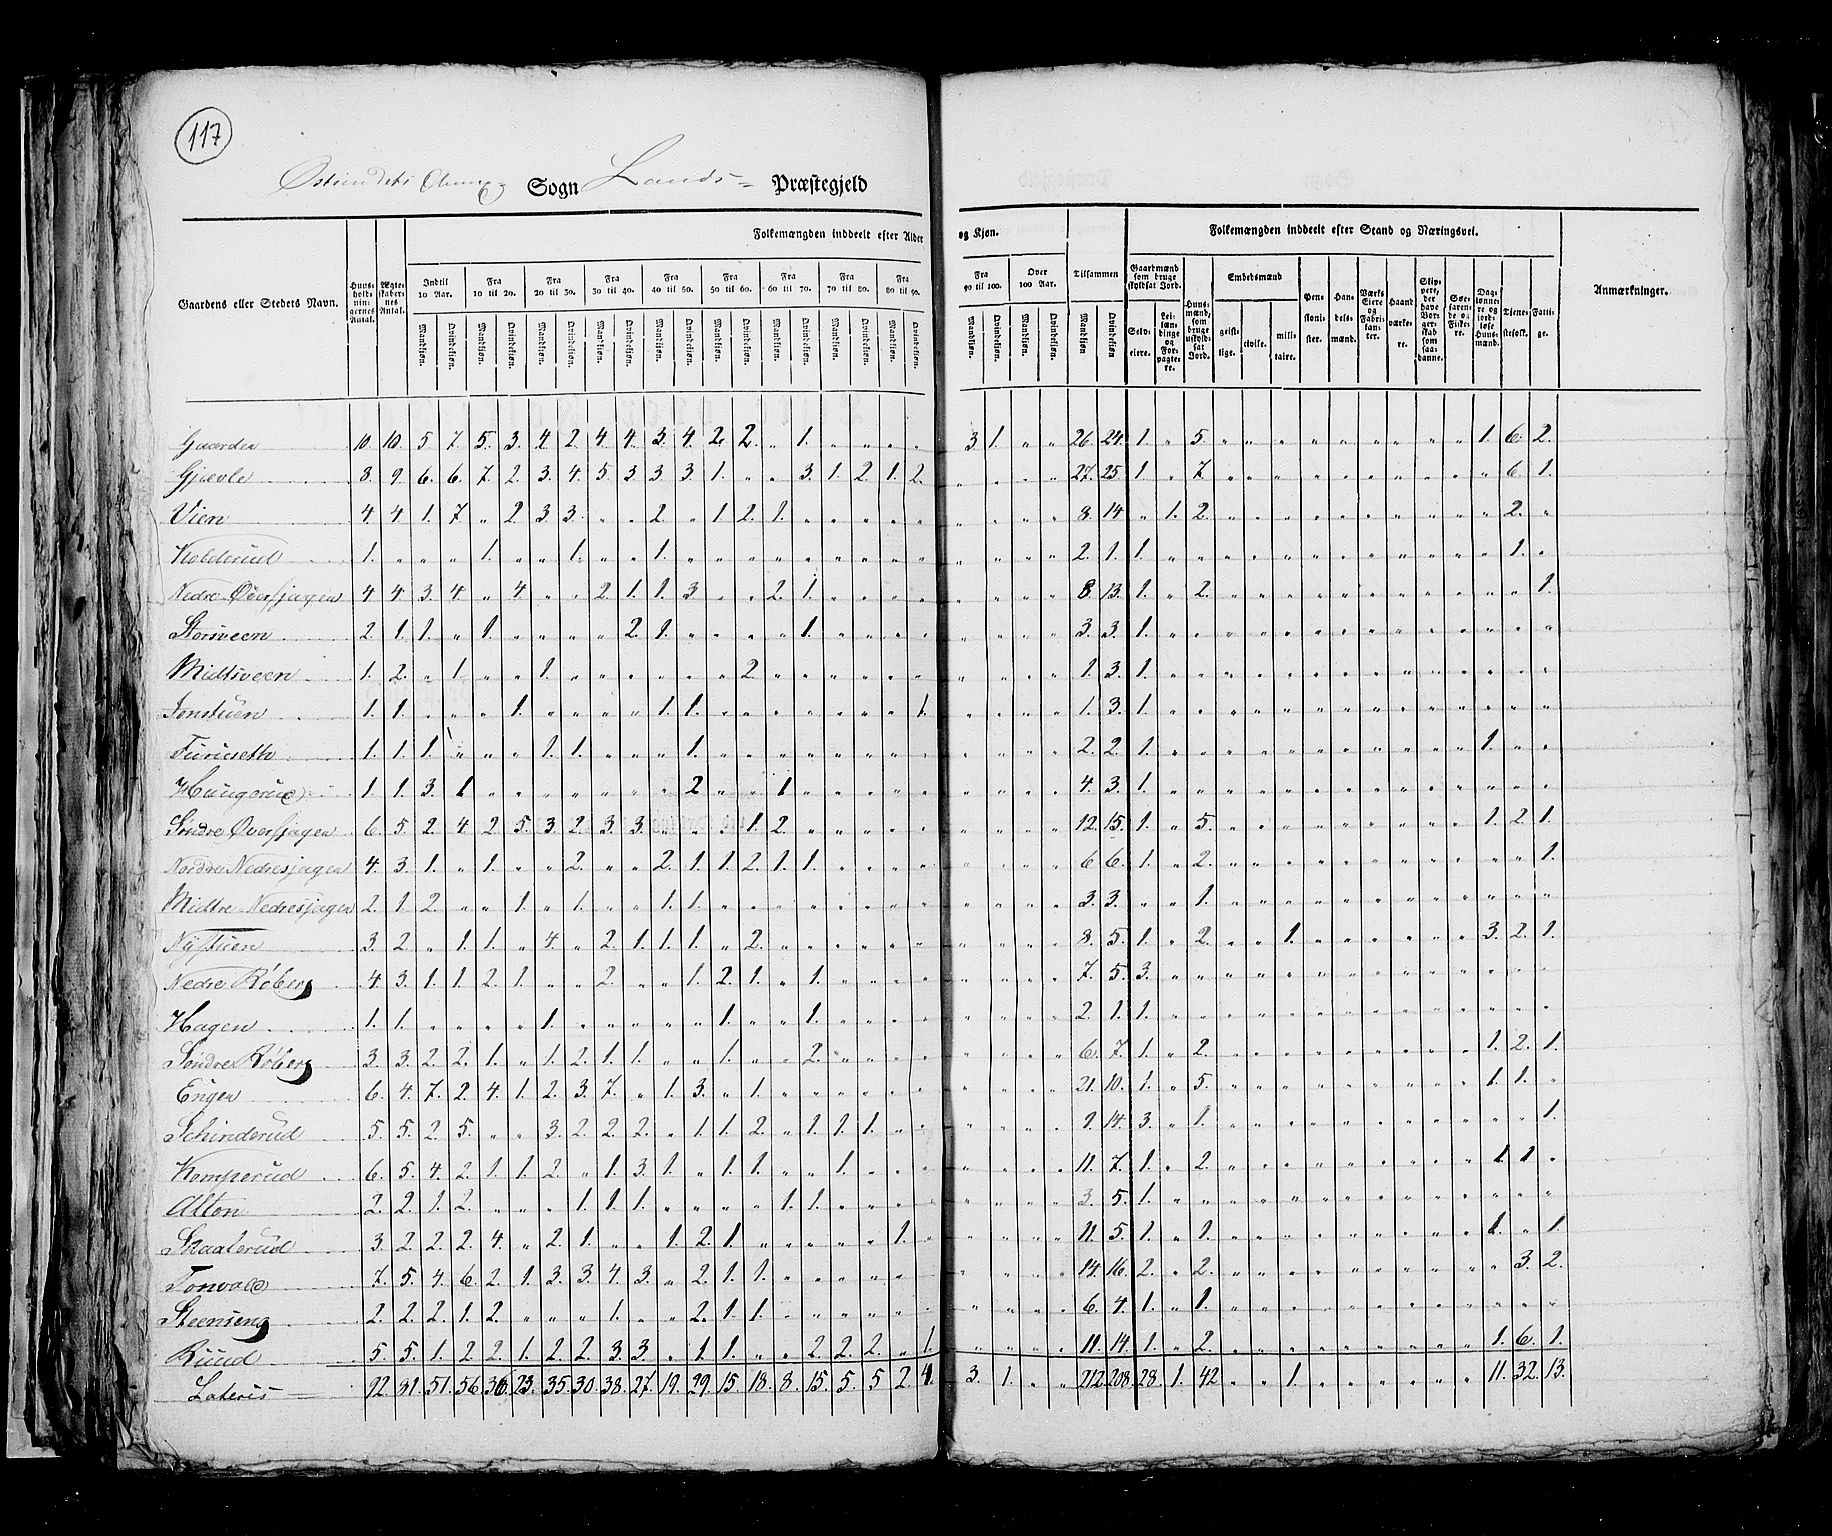 117
Sogn Lands= Præstegjeld
Gaardens eller Stedets Navn. Huusholdningernes Antal. Ægteskabernes Antal. Folkemængden inddeelt efter Alder og Kjøn. Tilsammen Folkemængden inddeelt efter Stand og Næringsvei. Anmærkninger.
Indtil 10 Aar. Fra 10 til 20. Fra 20 til 30. Fra 30 til 40. Fra 40 til 50. Fra 50 til 60. Fra 60 til 70. Fra 70 til 80. Fra 80 til 90. Fra 90 til 100. Over 100 Aar. Gaardmænd som bruge skyldsat Jord. Huusmænd, som bruge uskyldsat Jord. Embedsmænd Pensionister. Handelsmænd. Værks Eiere og Fabrikanter. Haandværkere. Skippere, der have Borgerskab som saadanne. Søefarende og Fiskere. Daglønnere og jordløse Huusmænd. Tjenestefolk. Fattige.
Mandkjøn. Qvindekjøn. Mandkjøn. Qvindekjøn. Mandkjøn. Qvindekjøn. Mandkjøn. Qvindekjøn. Mandkjøn. Qvindekjøn. Mandkjøn. Qvindekjøn. Mandkjøn. Qvindekjøn. Mandkjøn. Qvindekjøn. Mandkjøn. Qvindekjøn. Mandkjøn. Qvindekjøn. Mandkjøn. Qvindekjøn. Mandkjøn Qvindekjøn Selveiere. Leilændinge og Forpagtere. geistlige. civile. militaire.
Gaarder 10. 10. 5 7. 5. 3. 4. 2. 4 4. 3. 4. 2. 2. „ 1. „ „ „ „ 3 1. „ „ 26 24. 1. „ 5. „ „ „ „ „ „ „ „ „ 1. 6. 2.
Gjævle 8. 9. 6. 6. 7. 2. 3. 4. 5. 3. 3. 3. 1. „ „ 3. 1. 2. 1. 2. „ „ „ „ 27. 25. 1. „ 7 „ „ „ „ „ „ „ „ „ „ 6. 1.
Vien 4. 4. 1. 7 „ 2 3. 3. „ „ 2. „ 1. 2. 1. „ „ „ „ „ „ „ „ „ 8. 14 „ 1. 2. „ „ „ „ „ „ „ „ „ „ 2. „
Kolderud 1. „ „ „ 1. „ „ 1. „ „ 1. „ „ „ „ „ „ „ „ „ „ „ „ „ 2. 1. 1. „ „ „ „ „ „ „ „ „ „ „ „ 1. „
Nedre Øversjagen 4 4. 3. 4. „ 4. „ „ 2. 1. 1. 3. „ „ 2. 1. „ „ „ „ „ „ „ „ 8. 13. 1. „ 2. „ „ „ „ „ „ „ „ „ „ „ 1.
Storsveen 2. 1. 1. „ 1. „ „ „ „ 2. 1. „ „ „ „ 1. „ „ „ „ „ „ „ „ 3. 3. 1. „ „ „ „ „ „ „ „ „ „ „ „ „ „
Midtsveen 1. 2. „ 1 „ „ 1. „ „ „ „ „ „ 2. „ „ „ „ „ „ „ „ „ „ 1. 3. 1. „ „ „ „ „ „ „ „ „ „ „ „ „ „
Jonstuen 1. 1. „ „ „ 1. „ „ „ „ 1. 1. „ „ „ „ „ „ „ 1. „ „ „ „ 1. 3. 1. „ „ „ „ „ „ „ „ „ „ „ „ „ „
Furuseth 1. 1. 1. „ „ „ 1. 1. „ „ „ 1. „ „ „ „ „ „ „ „ „ „ „ „ 2. 2. 1. „ „ „ „ „ „ „ „ „ „ „ 1. „ „
Haugerud 1. 1. 3. 1 „ „ „ „ „ „ „ 2 „ „ 1 „ „ „ „ „ „ „ „ „ 4. 3. 1. „ „ „ „ „ „ „ „ „ „ „ „ „ „
Søndre Øversjagen 6. 5. 2. 4 2. 5. 3. 2. 3. 3. „ „ „ 1. 2. „ „ „ „ „ „ „ „ „ 12. 15. 1. „ 5. „ „ „ „ „ „ „ „ „ 1. 2. 1.
Nordre Nedresjagen 4. 3. 1. „ 1. „ „ 2. „ „ 2. 1. 1. 2. 1. 1. „ „ „ „ „ „ „ „ 6 6. 1. „ 2. „ „ „ „ „ „ „ „ „ „ „ 1.
Midtre Nedresjagen 2. 1. 2. „ „ 1. „ 1. „ „ 1. 1. „ „ „ „ „ „ „ „ „ „ „ „ 3. 3. „ „ 1. „ „ „ „ „ „ „ „ „ „ „ „
Nystuen 3. 2. „ 1. 1. „ 4. „ 2. 1. 1. 1. „ 2. „ „ „ „ „ „ „ „ „ „ 8. 5. 1. „ 2. „ „ 1. „ „ „ „ „ „ 3. 2. 1.
Nedre Røberg 4. 3. 1. 1. 2. 1. „ „ 2. „ „ 1. 2. 1. „ 1. „ „ „ „ „ „ „ „ 7. 5. 3. „ „ „ „ „ „ „ „ „ „ „ „ „ „
Hagen 1. 1. „ „ „ „ 1. „ „ „ „ „ 1. „ „ 1. „ „ „ „ „ „ „ „ 2. 1. 1. „ „ „ „ „ „ „ „ „ „ „ „ „ „
Søndre Røberg 3. 3. 2. 2. 1. „ 1. 2. 1. 1. „ „ 1. „ „ 2. „ „ „ „ „ „ „ „ 6. 7. 1. „ 2. „ „ „ „ „ „ „ „ „ 1. 2. 1.
Engen 6. 4. 7. 2. 4. 1. 2. 3. 7. „ 1. 3. „ 1. „ „ „ „ „ „ „ „ „ „ 21. 10. 1. „ 5. „ „ „ „ „ „ „ „ „ 1. 1. „
Schinderud 5. 5. 2. 5. „ „ 3. 2. 2. 2. „ 1. 1. 2. „ 1. 1. 1. „ „ „ „ „ „ 9. 14. 3. „ 1. „ „ „ „ „ „ „ „ „ „ „ 1.
Komperud 6. 5. 4. 2. 1. 1. 2. „ 1. 3. 1. „ 1. 1. „ „ 1. „ „ „ „ „ „ „ 11. 7. 1. „ 2. „ „ „ „ „ „ „ „ „ 1. 1. „
Alton 2. 2. 1. 2. „ „ „ 1. 1. 1. „ „ „ „ 1. 1. „ „ „ „ „ „ „ „ 3. 5. 1. „ „ „ „ „ „ „ „ „ „ „ „ „ „
Skaaterud 3. 2. 2. 2. 4. „ 2. 1. „ „ 1. 2. 1. „ „ „ „ „ 1. „ „ „ „ „ 11. 5. 1. „ 1. „ „ „ „ „ „ „ „ „ 1. „ 1.
Tonvold 7. 5. 4. 6. 2. 1. 3. 3. 4. 3. „ 2. 1. 1. „ „ „ „ „ „ „ „ „ „ 14. 16. 2. „ 2. „ „ „ „ „ „ „ „ „ „ 3. 2.
Steenseng 2. 2. 2. 1. 2. „ „ „ 1. „ „ 2. 1. 1. „ „ „ „ „ „ „ „ „ „ 6. 4. 1. „ 1. „ „ „ „ „ „ „ „ „ „ „ „
Ruud 5. 5. 1. 2. 2. 1. 2. 2. 3. 3. „ 1. 1. „ „ 2. 2. 2. „ 1. „ „ „ „ 11. 14. 1. „ 2. „ „ „ „ „ „ „ „ „ 1. 6. 1.
Lateris 92 81. 51. 56. 36 23. 35. 30. 38. 27. 19. 29. 15. 18. 8. 15. 5. 5 2. 4. 3. 1. „ „ 212. 208. 28. 1. 42 „ „ 1. „ „ „ „ „ „ 11. 32. 13.